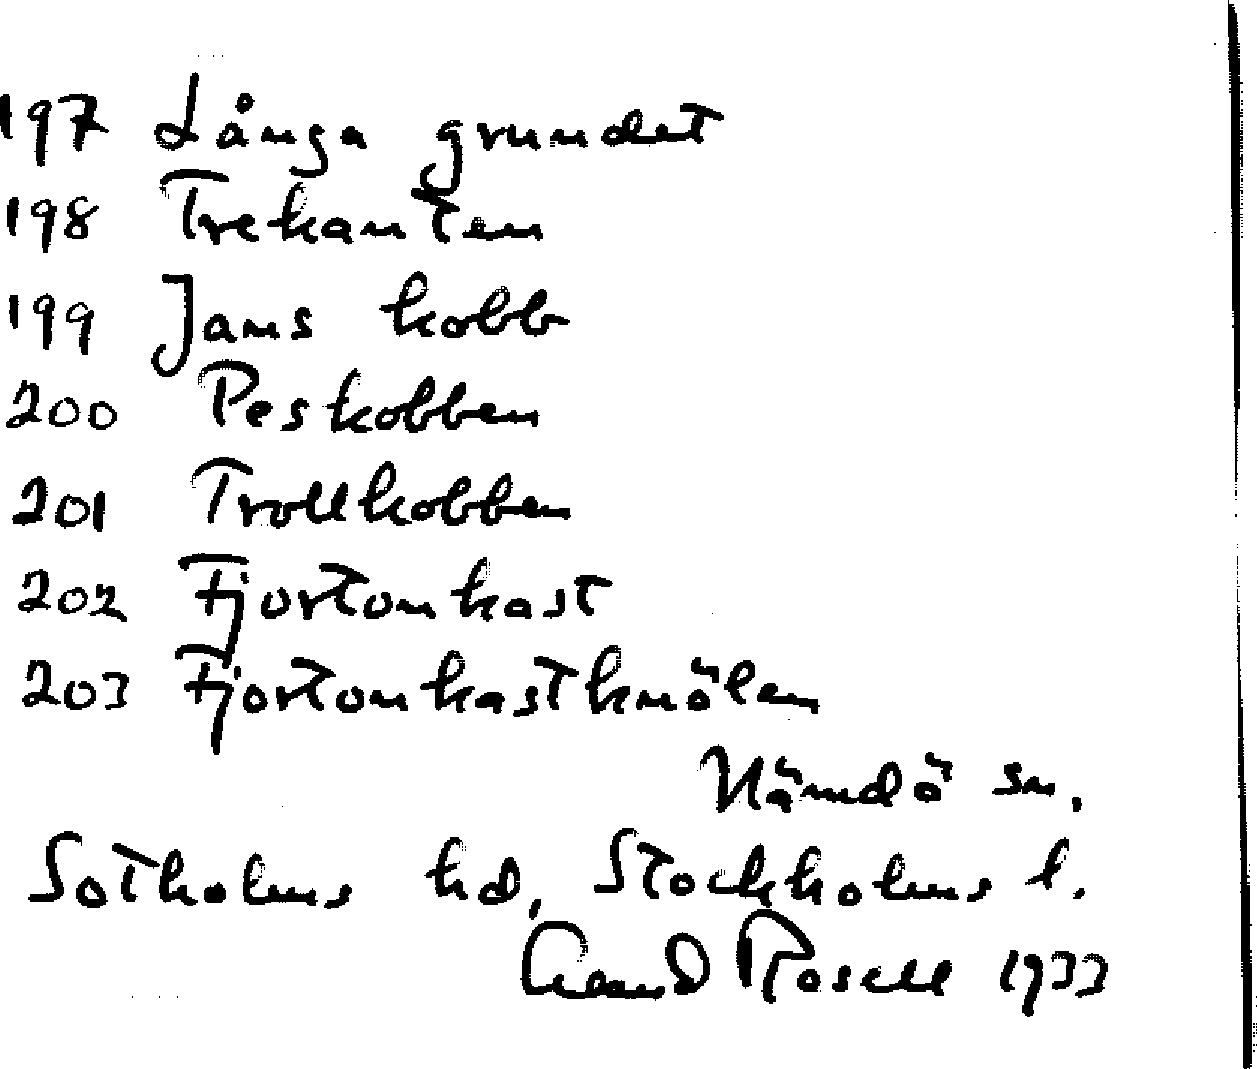 197 Långa grundet
198 Trekanten
199 Jams kobb
200 Peskobben
201 Trollkobben
202 Fjortonkast
203 Fjortonkastknölen
Nämdö sn.
Sotholms hd, Stockholms l.
Rosell 1933